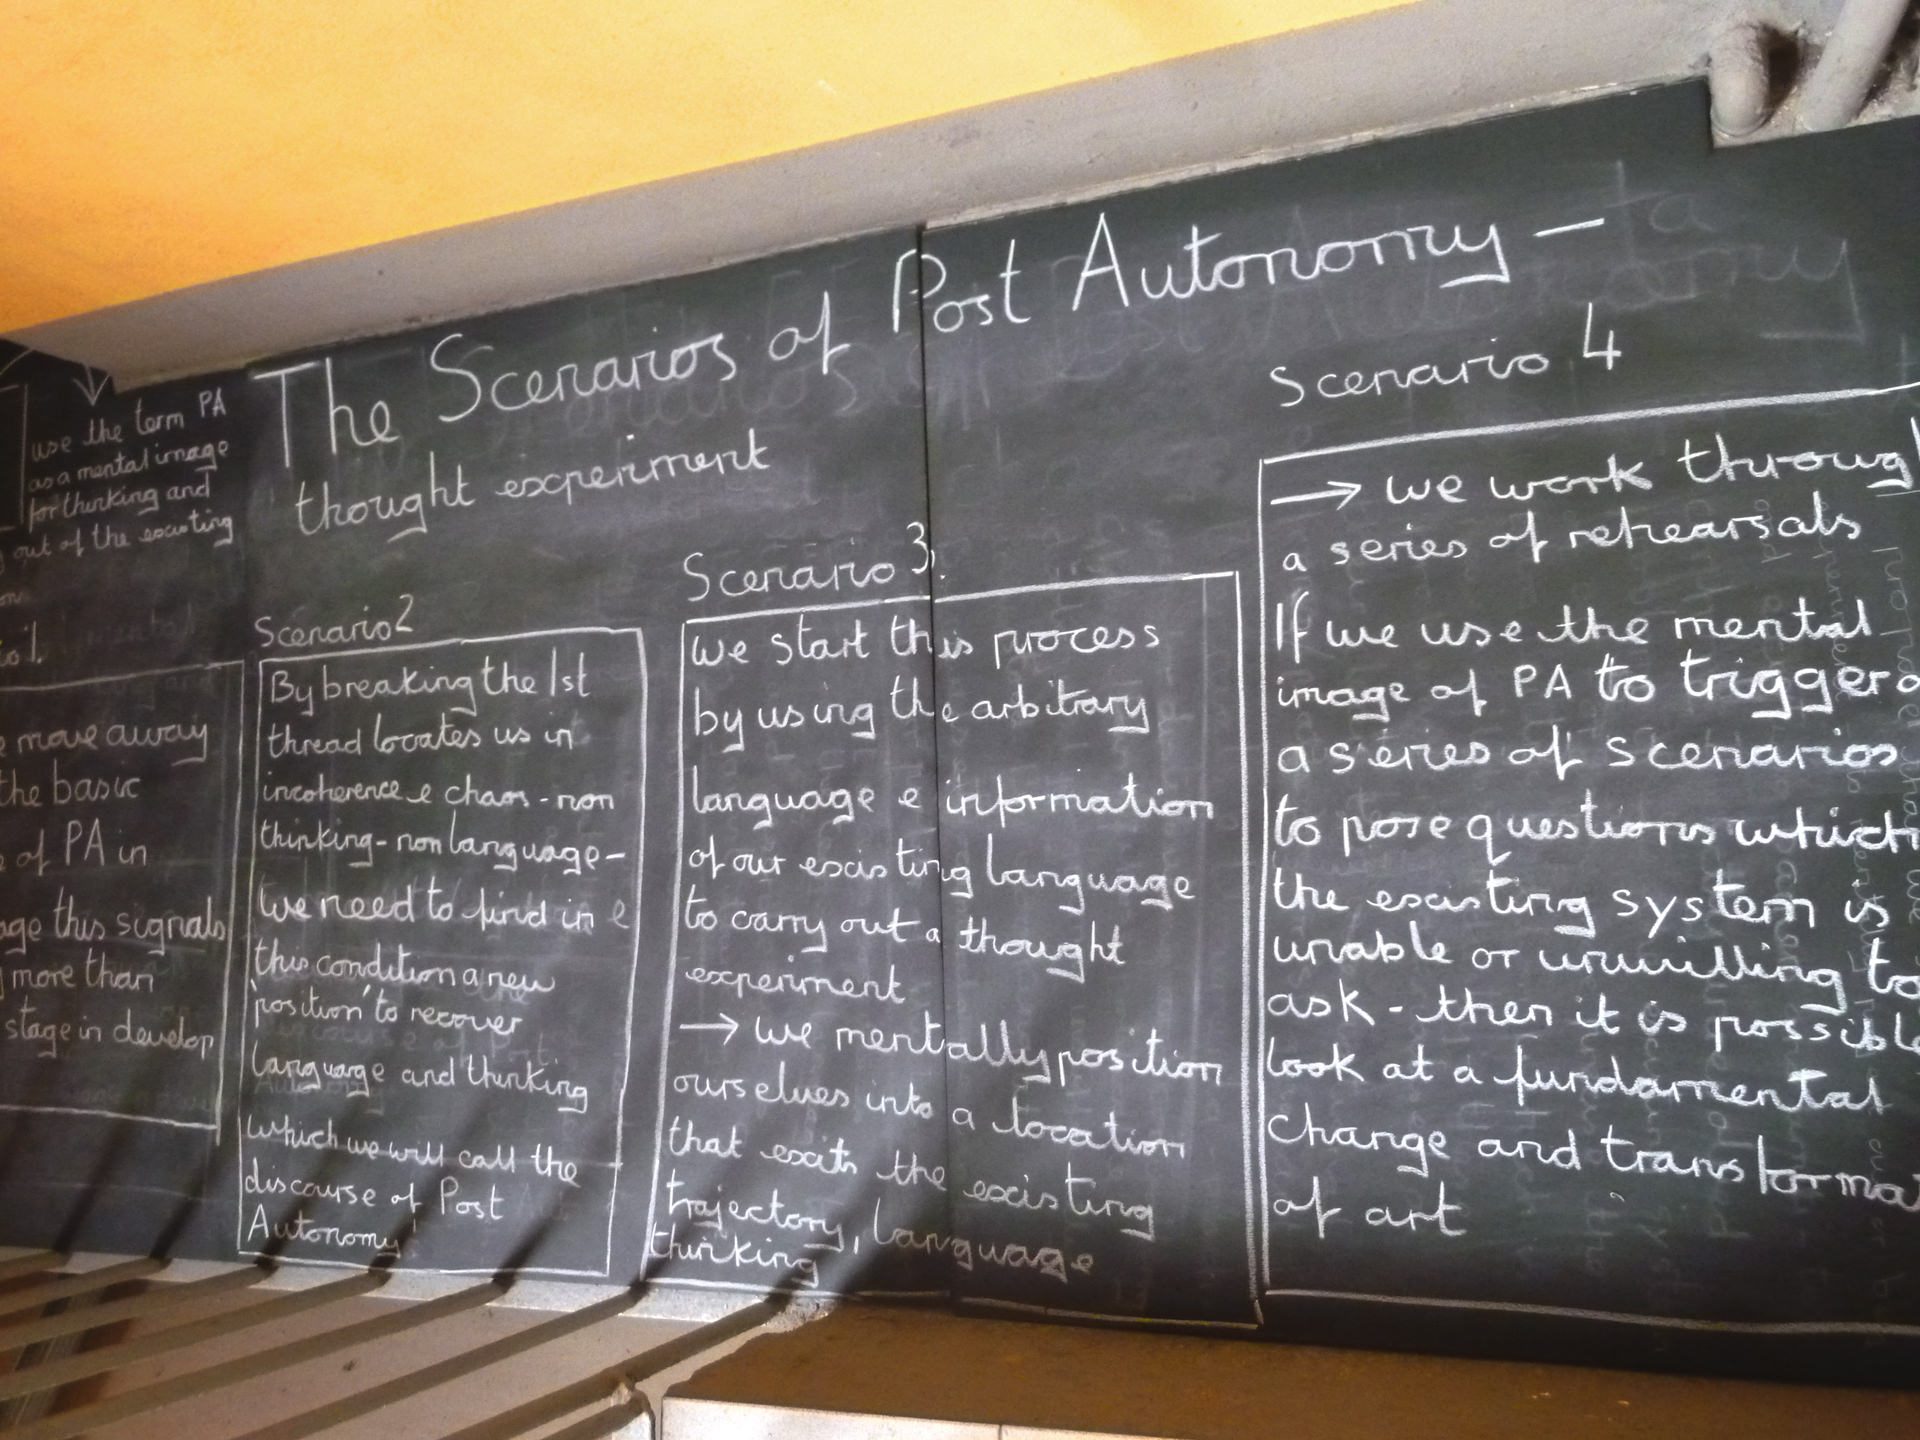 use the term PA
as a mental image
for thinking and
out of the existing
The Scenarios of Post Autonomy -
thought experiment
move away
the basic
of PA in
this signals
more than
stage in develop
Scenario 2
By breaking the 1st
thread locates us in
incoherence e chaos - non
thinking - non language -
we need to find in e
this condition a new
'position' to recover
language and thinking
which we will call the
discourse of Post
Autonomy
Scenario 3.
we start this process
by using the arbitrary
language e information
of our existing language
to carry out a thought
experiment
→ we mentally position
ourselves into a location
that exits the existing
trajectory, language
thinking
Scenario 4
→ we work through
a series of rehearsals
If we use the mental
image of PA to trigger
a series of scenarios
to pose questions which
the existing system is
unable or unwilling to
ask - then it is possible
look at a fundamental
change and transforma
of art